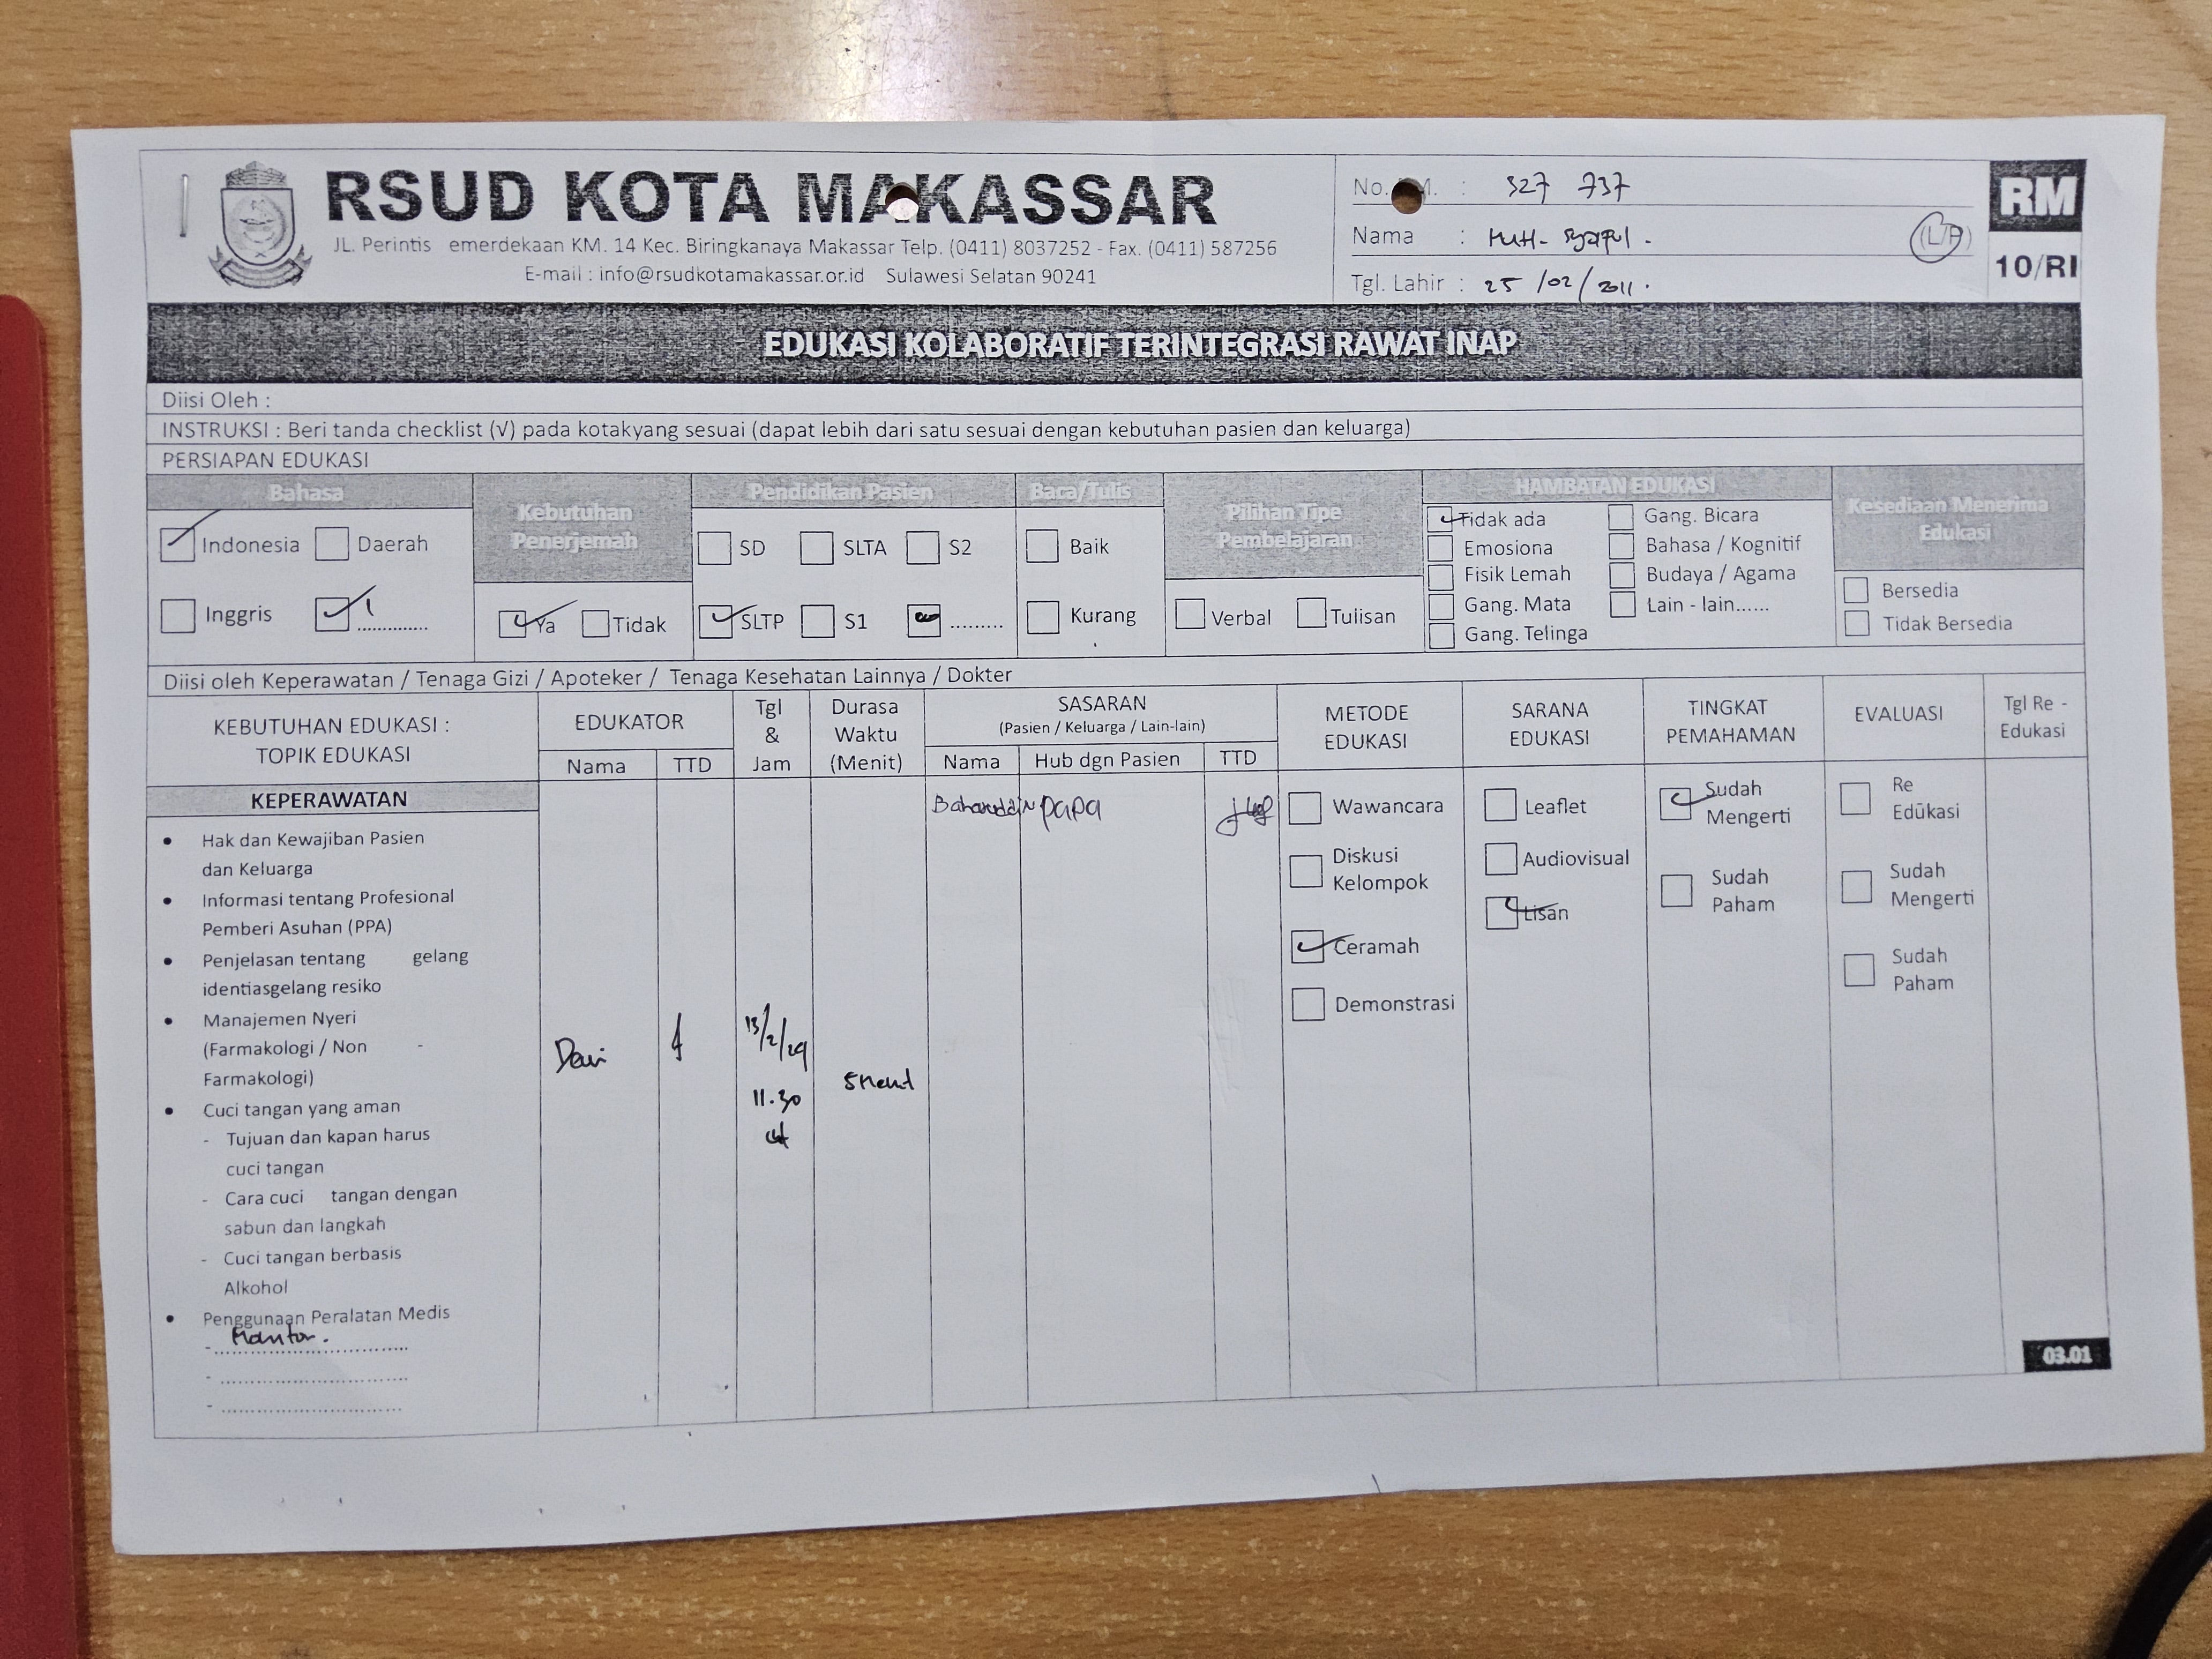 RSUD KOTA MAKASSAR
JL. Perintis emerdekaan KM. 14 Kec. Biringkanaya Makassar Telp. (0411) 8037252 - Fax. (0411) 587256
E-mail : info@rsudkotamakassar.or.id Sulawesi Selatan 90241
No. M. : 327 737
Nama : MUH. (L/P)
Tgl. Lahir : 25 /02/ 2011.
RM
10/RI
EDUKASI KOLABORATIF TERINTEGRASI RAWAT INAP
Diisi Oleh :
INSTRUKSI : Beri tanda checklist (√) pada kotakyang sesuai (dapat lebih dari satu sesuai dengan kebutuhan pasien dan keluarga)
PERSIAPAN EDUKASI
Bahasa
Indonesia Daerah
Inggris ..............
Kebutuhan
Penerjemah
Ya Tidak
Pendidikan Pasien
SD SLTA S2
SLTP S1 .........
Baca/Tulis
Baik
Kurang
Pilihan Tipe
Pembelajaran
Verbal Tulisan
HAMBATAN EDUKASI
Tidak ada Gang. Bicara
Emosiona Bahasa / Kognitif
Fisik Lemah Budaya / Agama
Gang. Mata Lain - lain......
Gang. Telinga
Kesediaan Menerima
Edukasi
Bersedia
Tidak Bersedia
Diisi oleh Keperawatan / Tenaga Gizi / Apoteker / Tenaga Kesehatan Lainnya / Dokter
KEBUTUHAN EDUKASI :
TOPIK EDUKASI
EDUKATOR
Nama TTD
Tgl
&
Jam
Durasa
Waktu
(Menit)
SASARAN
(Pasien / Keluarga / Lain-lain)
Nama Hub dgn Pasien TTD
METODE
EDUKASI
SARANA
EDUKASI
TINGKAT
PEMAHAMAN
EVALUASI
Tgl Re -
Edukasi
KEPERAWATAN
• Hak dan Kewajiban Pasien
dan Keluarga
• Informasi tentang Profesional
Pemberi Asuhan (PPA)
• Penjelasan tentang gelang
identiasgelang resiko
• Manajemen Nyeri
(Farmakologi / Non -
Farmakologi)
• Cuci tangan yang aman
- Tujuan dan kapan harus
cuci tangan
- Cara cuci tangan dengan
sabun dan langkah
- Cuci tangan berbasis
Alkohol
• Penggunaan Peralatan Medis
- ..............................
- ..............................
- ..............................
Dewi
11.30
5 Menit
Baharuddin papa
Wawancara
Diskusi
Kelompok
Ceramah
Demonstrasi
Leaflet
Audiovisual
Lisan
Sudah
Mengerti
Sudah
Paham
Re
Edukasi
Sudah
Mengerti
Sudah
Paham
03.01